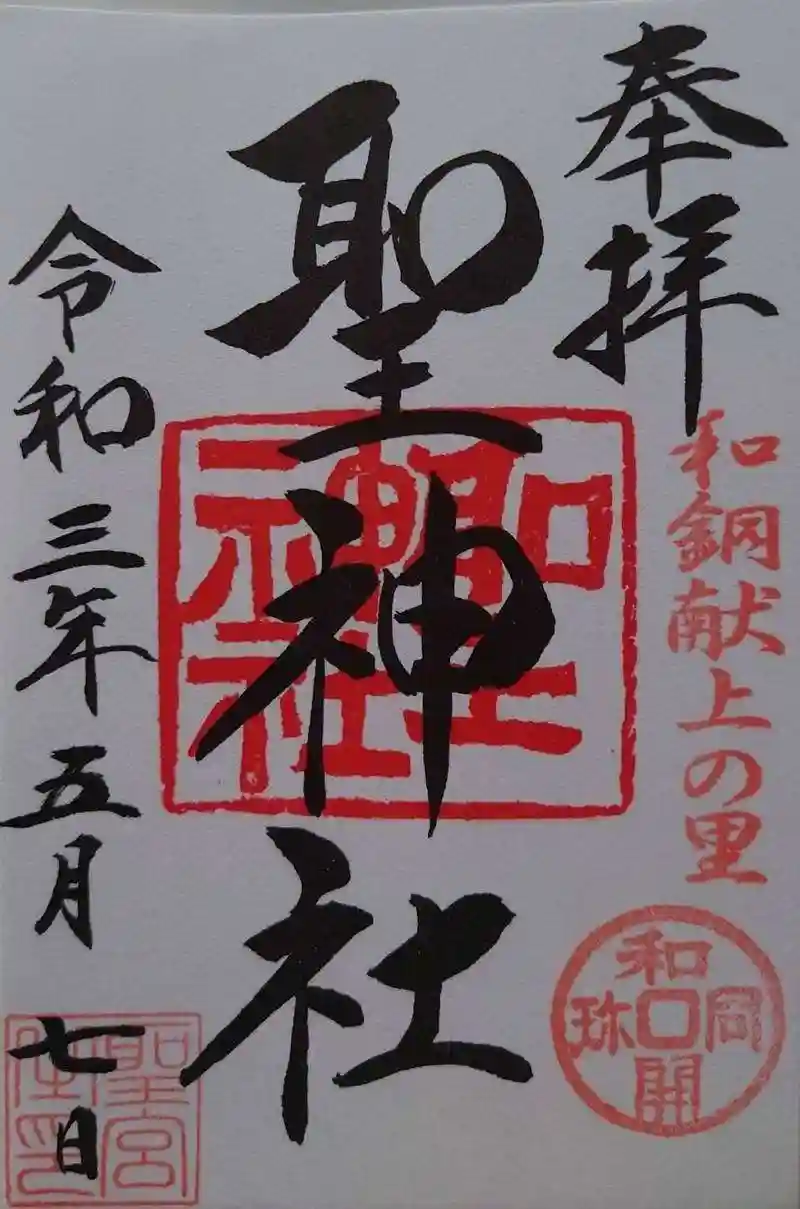 奉拝
和銅献上の里
和同開珎
聖神社
聖神社
令和三年五月七日
聖宮